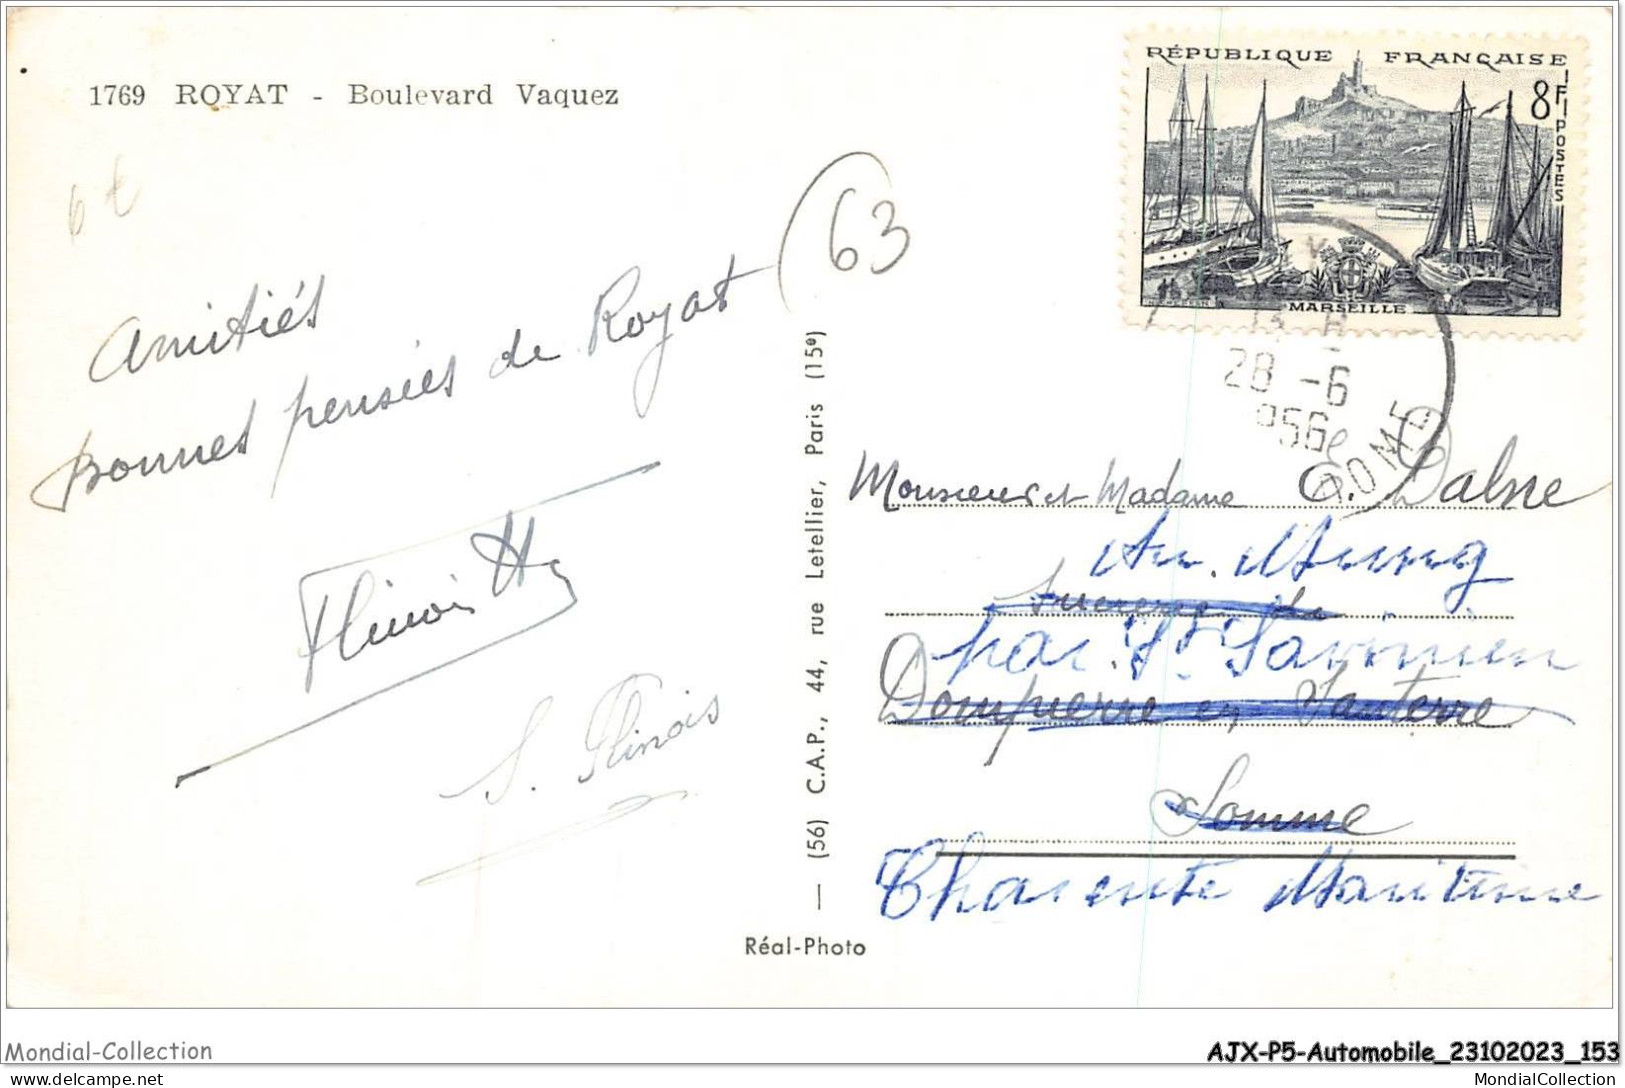 1769 ROYAT - Boulevard Vaquez
6€
(63
Amitiés
bonnes pensées de Royat
Flinois
S. Flinois
(56) C.A.P., 44, rue Letellier, Paris (15e)
Réal-Photo
RÉPUBLIQUE FRANÇAISE
8F
POSTES
MARSEILLE
28 -6
956
DOME
Monsieur et Madame
par St Savinien
Dompierre en Santerre
Somme
Charente Maritime
Mondial-Collection
AJX-P5-Automobile_23102023_153
www.delcampe.net
MondialCollection